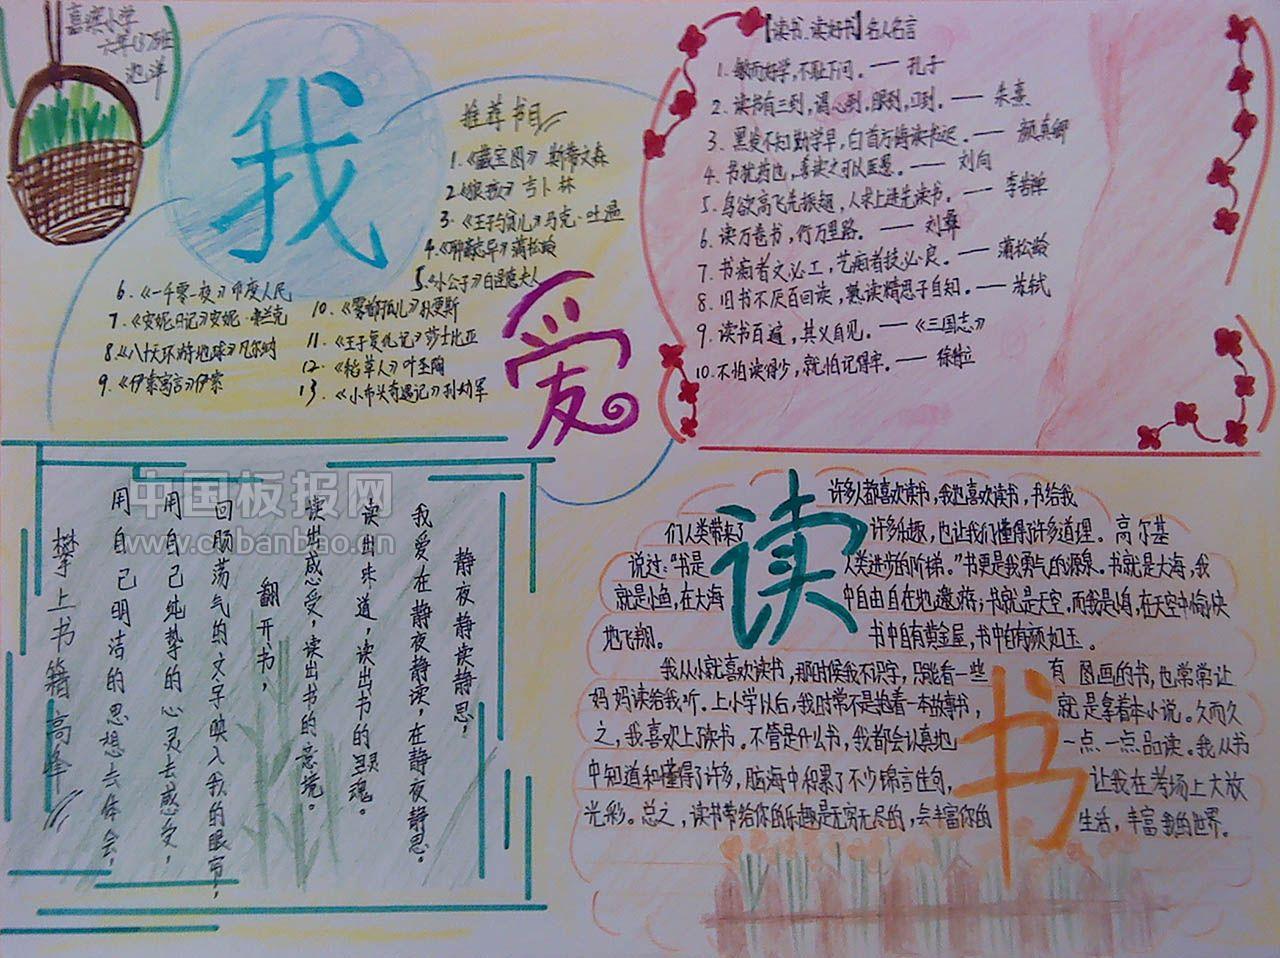 嘉滨小学
六年(8)班
池洋
我
爱
读
书
推荐书目
1.《藏宝图》斯蒂文森
2.《狼孩》吉卜林
3.《王子与贫儿》马克·吐温
4.《聊斋志异》蒲松龄
5.《小公子》白涅德夫人
6.《一千零一夜》印度人民
7.《安妮日记》安妮·弗兰克
8.《八十天环游地球》凡尔纳
9.《伊索寓言》伊索
10.《雾都孤儿》狄更斯
11.《王子复仇记》莎士比亚
12.《稻草人》叶圣陶
13.《小布头奇遇记》孙幼军
【读书、读好书】名人名言
1.敏而好学，不耻下问。——孔子
2.读书有三到，谓心到，眼到，口到。——朱熹
3.黑发不知勤学早，白首方悔读书迟。——颜真卿
4.书犹药也，善读之可以医愚。——刘向
5.鸟欲高飞先振翅，人求上进先读书。——李若禅
6.读万卷书，行万里路。——刘彝
7.书痴者文必工，艺痴者技必良。——蒲松龄
8.旧书不厌百回读，熟读精思子自知。——苏轼
9.读书百遍，其义自见。——《三国志》
10.不怕读得少，就怕记得牢。——徐特立
静夜静读静思，
我爱在静夜静读，在静夜静思。
读出味道，读出书的灵魂。
读出感受，读出书的意境。
翻开书，
回肠荡气的文字映入我的眼帘，
用自己纯挚的心灵去感受，
用自己明洁的思想去体会，
攀上书籍高峰
许多人都喜欢读书，我也喜欢读书，书给我
们人类带来了许多乐趣，也让我们懂得许多道理。高尔基
说过：“书是人类进步的阶梯。”书更是我勇气的源泉。书就是大海，我
就是小鱼，在大海中自由自在地遨游；书就是天空，而我是小鸟，在天空中愉快
地飞翔。书中自有黄金屋，书中自有颜如玉。
我从小就喜欢读书，那时候我不识字，只能看一些有图画的书，也常常让
妈妈读给我听。上小学以后，我时常不是抱着一本故事书，就是拿着本小说。久而久
之，我喜欢上了读书。不管是什么书，我都会认真地一点一点品读。我从书
中知道和懂得了许多，脑海中积累了不少锦言佳句，让我在考场上大放
光彩。总之，读书带给你的乐趣是无穷无尽的，会丰富你的生活，丰富我的世界。
中国板报网
www.cnbanbao.cn